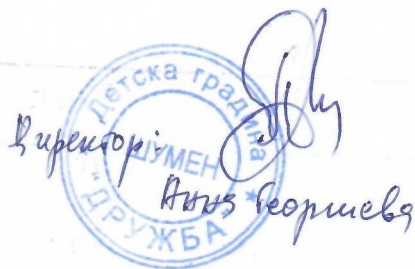 Детска градина
ШУМЕН
"ДРУЖБА"
Директор:
Анна Георгиева